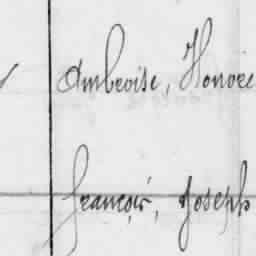 Ambroise, Honoré
François, Joseph